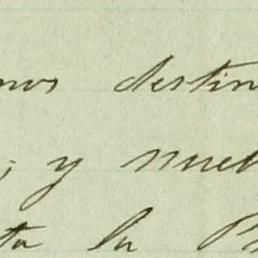 nos destin
; y nuev
ta la P